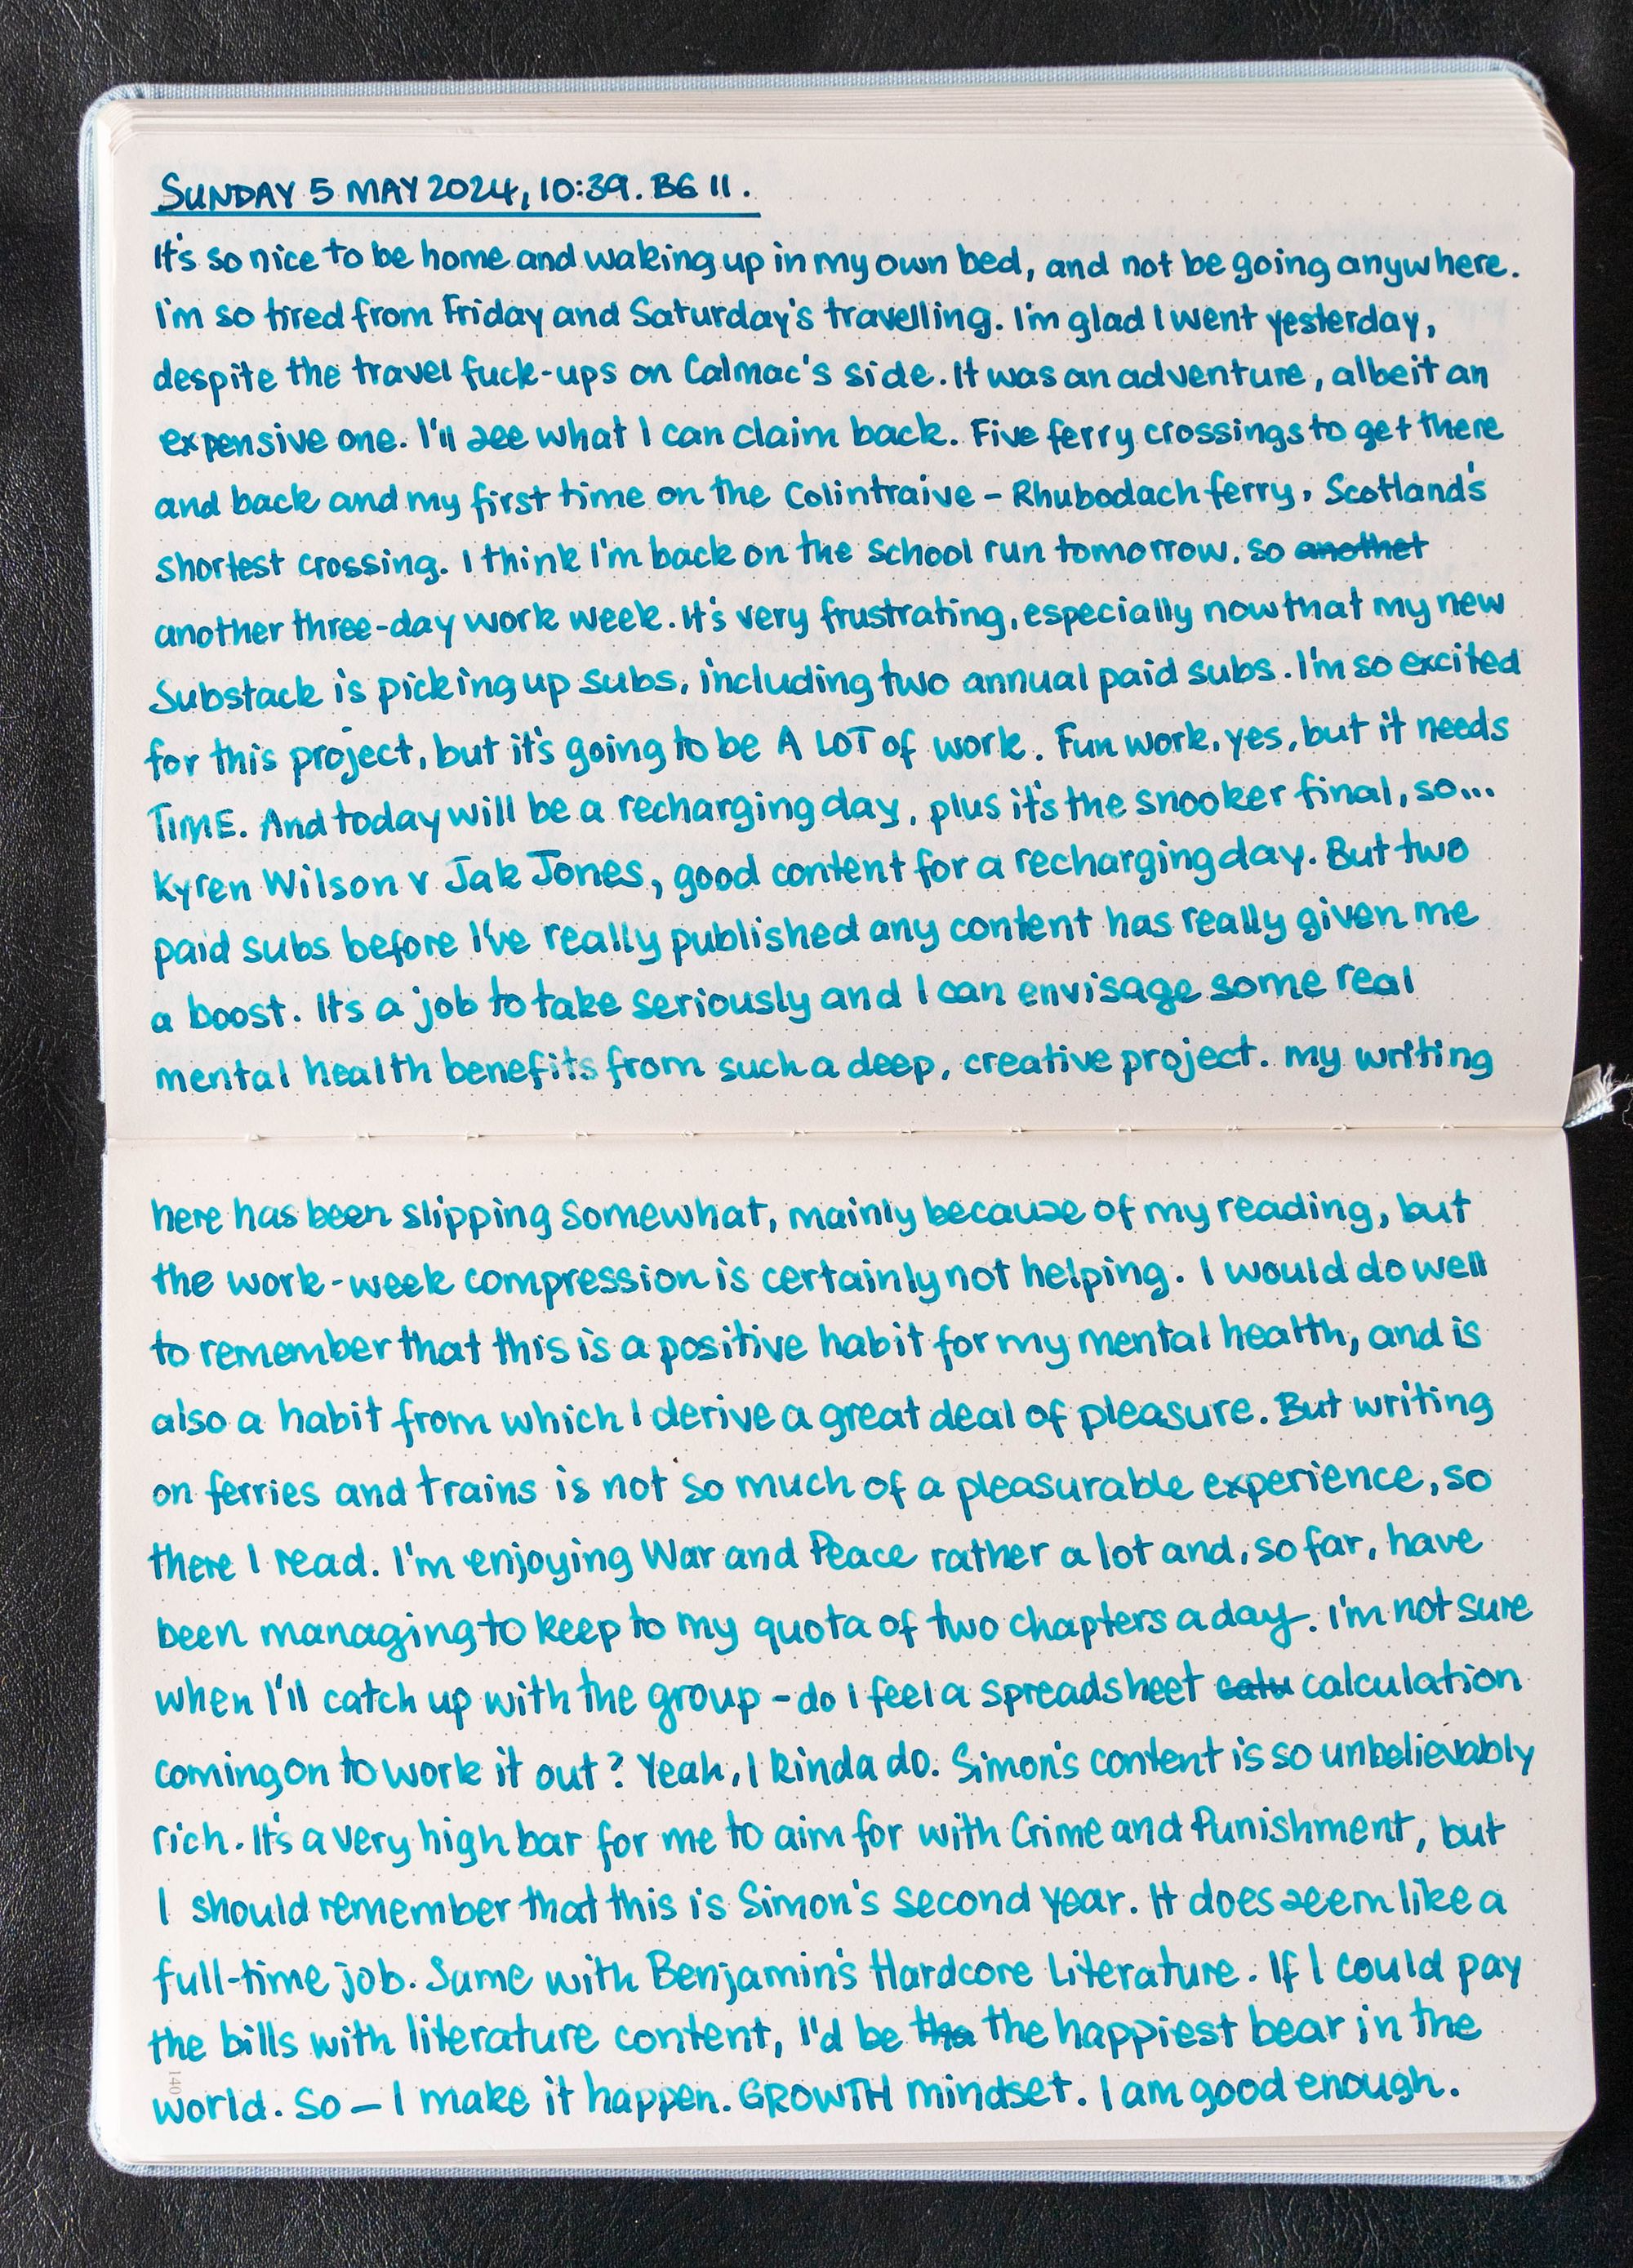 SUNDAY 5 MAY 2024, 10:39. BG 11.
It's so nice to be home and waking up in my own bed, and not be going anywhere.
I'm so tired from Friday and Saturday's travelling. I'm glad I went yesterday,
despite the travel fuck-ups on Calmac's side. It was an adventure, albeit an
expensive one. I'll see what I can claim back. Five ferry crossings to get there
and back and my first time on the Colintraive – Rhubodach ferry, Scotland's
shortest crossing. I think I'm back on the school run tomorrow, so anothet
another three-day work week. It's very frustrating, especially now that my new
Substack is picking up subs, including two annual paid subs. I'm so excited
for this project, but it's going to be A LOT of work. Fun work, yes, but it needs
TIME. And today will be a recharging day, plus it's the snooker final, so...
Kyren Wilson v Jak Jones, good content for a recharging day. But two
paid subs before I've really published any content has really given me
a boost. It's a job to take seriously and I can envisage some real
mental health benefits from such a deep, creative project. My writing
here has been slipping somewhat, mainly because of my reading, but
the work-week compression is certainly not helping. I would do well
to remember that this is a positive habit for my mental health, and is
also a habit from which I derive a great deal of pleasure. But writing
on ferries and trains is not so much of a pleasurable experience, so
there I read. I'm enjoying War and Peace rather a lot and, so far, have
been managing to keep to my quota of two chapters a day. I'm not sure
when I'll catch up with the group – do I feel a spreadsheet calu calculation
coming on to work it out? Yeah, I kinda do. Simon's content is so unbelievably
rich. It's a very high bar for me to aim for with Crime and Punishment, but
I should remember that this is Simon's second year. It does seem like a
full-time job. Same with Benjamin's Hardcore Literature. If I could pay
the bills with literature content, I'd be tha the happiest bear in the
world. So – I make it happen. GROWTH mindset. I am good enough.
140